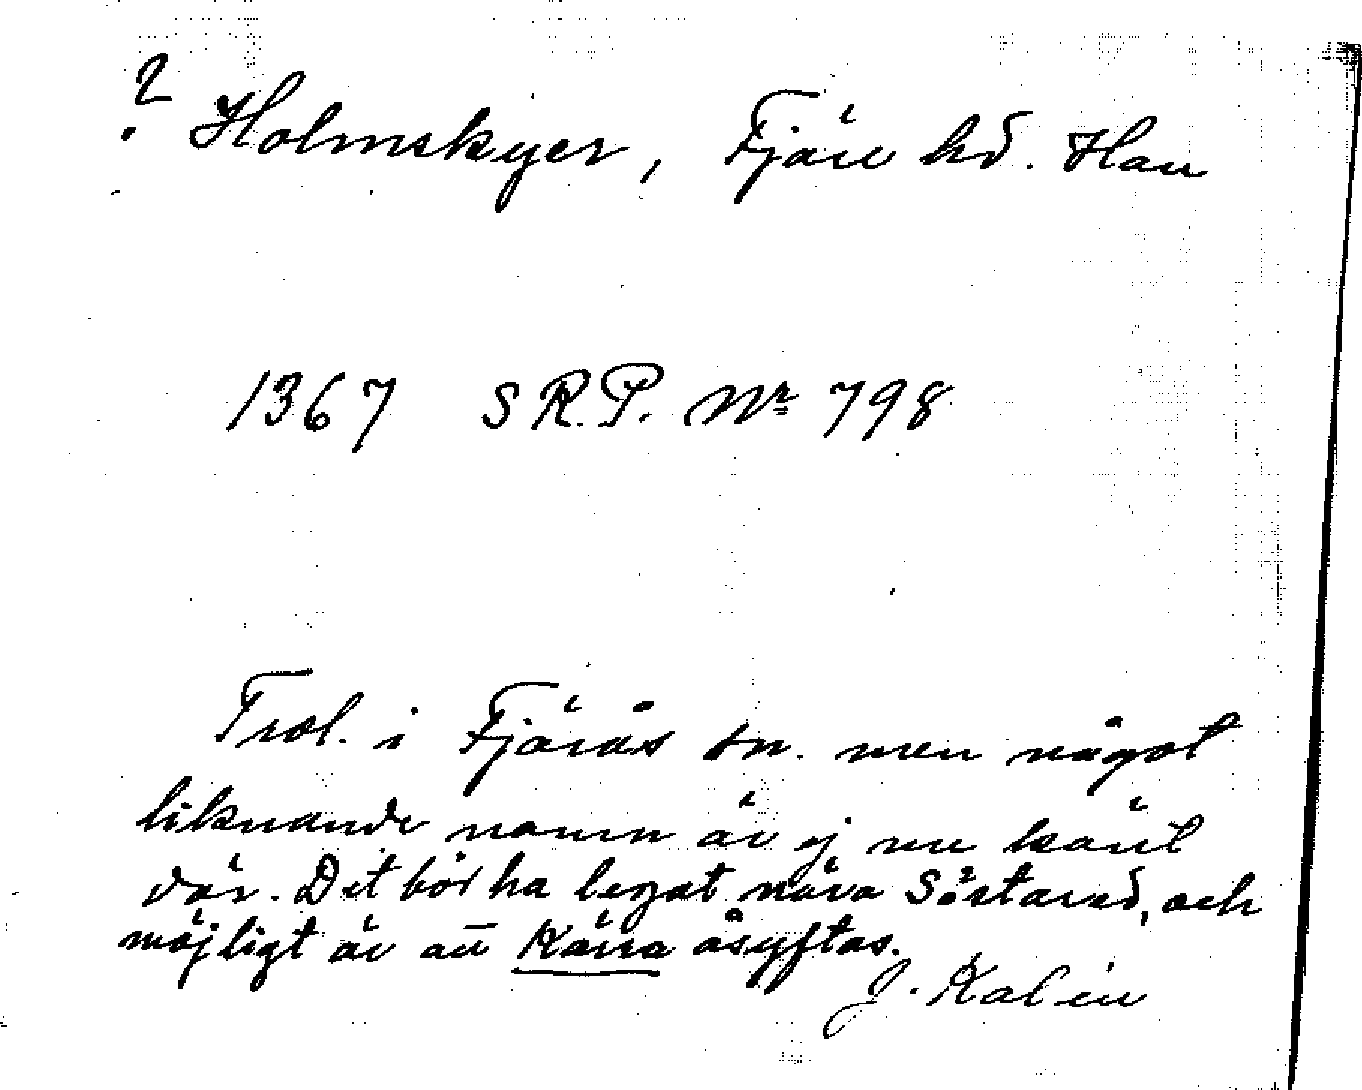 ? Holmskyer, Fjäre hd. Hall
1367 S R.P. Nr 798
Trol. i Fjärås sn. men något
liknande namn är ej nu känt
där. Det bör ha legat nära Sörtared, och
möjligt är att Kärra åsyftas.
J. Kalén